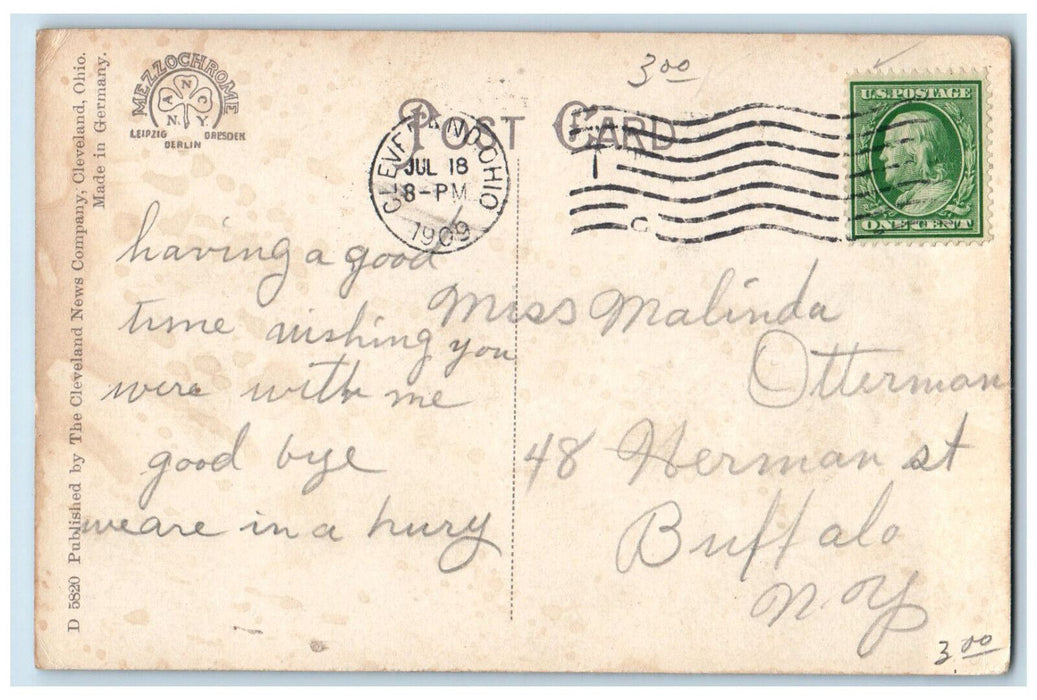 D 5820 Published by The Cleveland News Company, Cleveland, Ohio.
Made in Germany.
MEZZOCHROME
A N C
N. Y.
LEIPZIG DRESDEN
BERLIN
POST CARD
3 00
CLEVELAND, OHIO
JUL 18
8-PM
1909
U.S. POSTAGE
ONE CENT
having a good
time wishing you
were with me
good bye
we are in a hury
Miss Malinda
Otterman
48 Herman st
Buffalo
N. Y
3 00